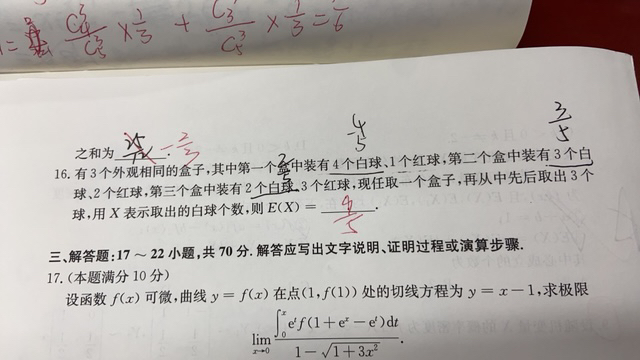 C₄³/C₅³ × 1/3 + C₃³/C₅³ × 1/3 = 1/6
4/5
3/5
之和为 . - 2/3
16. 有 3 个外观相同的盒子,其中第一个盒中装有 4 个白球、1 个红球,第二个盒中装有 3 个白
球、2 个红球,第三个盒中装有 2 个白球、3 个红球,现任取一个盒子,再从中先后取出 3 个
球,用 X 表示取出的白球个数,则 E(X) = 9/5 .
三、解答题:17 ～ 22 小题,共 70 分. 解答应写出文字说明、证明过程或演算步骤.
17. (本题满分 10 分)
设函数 f(x) 可微,曲线 y = f(x) 在点(1, f(1)) 处的切线方程为 y = x − 1,求极限
lim_{x→0} ∫₀ˣ eᵗ f(1 + eˣ − eᵗ)dt / (1 − √(1 + 3x²)) .